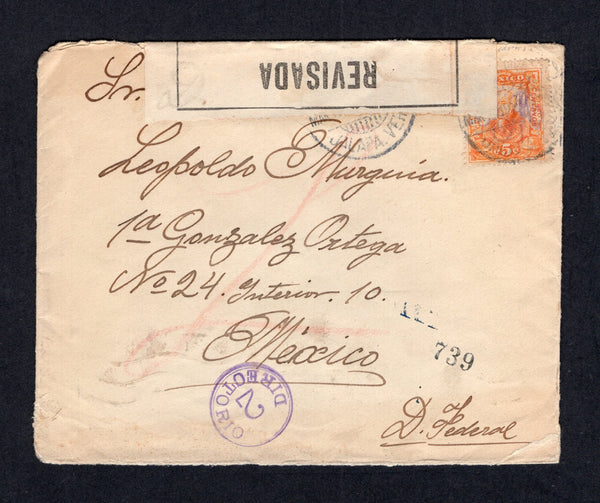 REVISADA
MEXICO
5
JALAPA. VER
Sr.
Leopoldo Murguia.
1a Gonzalez Ortega
No 24. Interior. 10.
México
739
DIRECTORIO
2
D. Federal